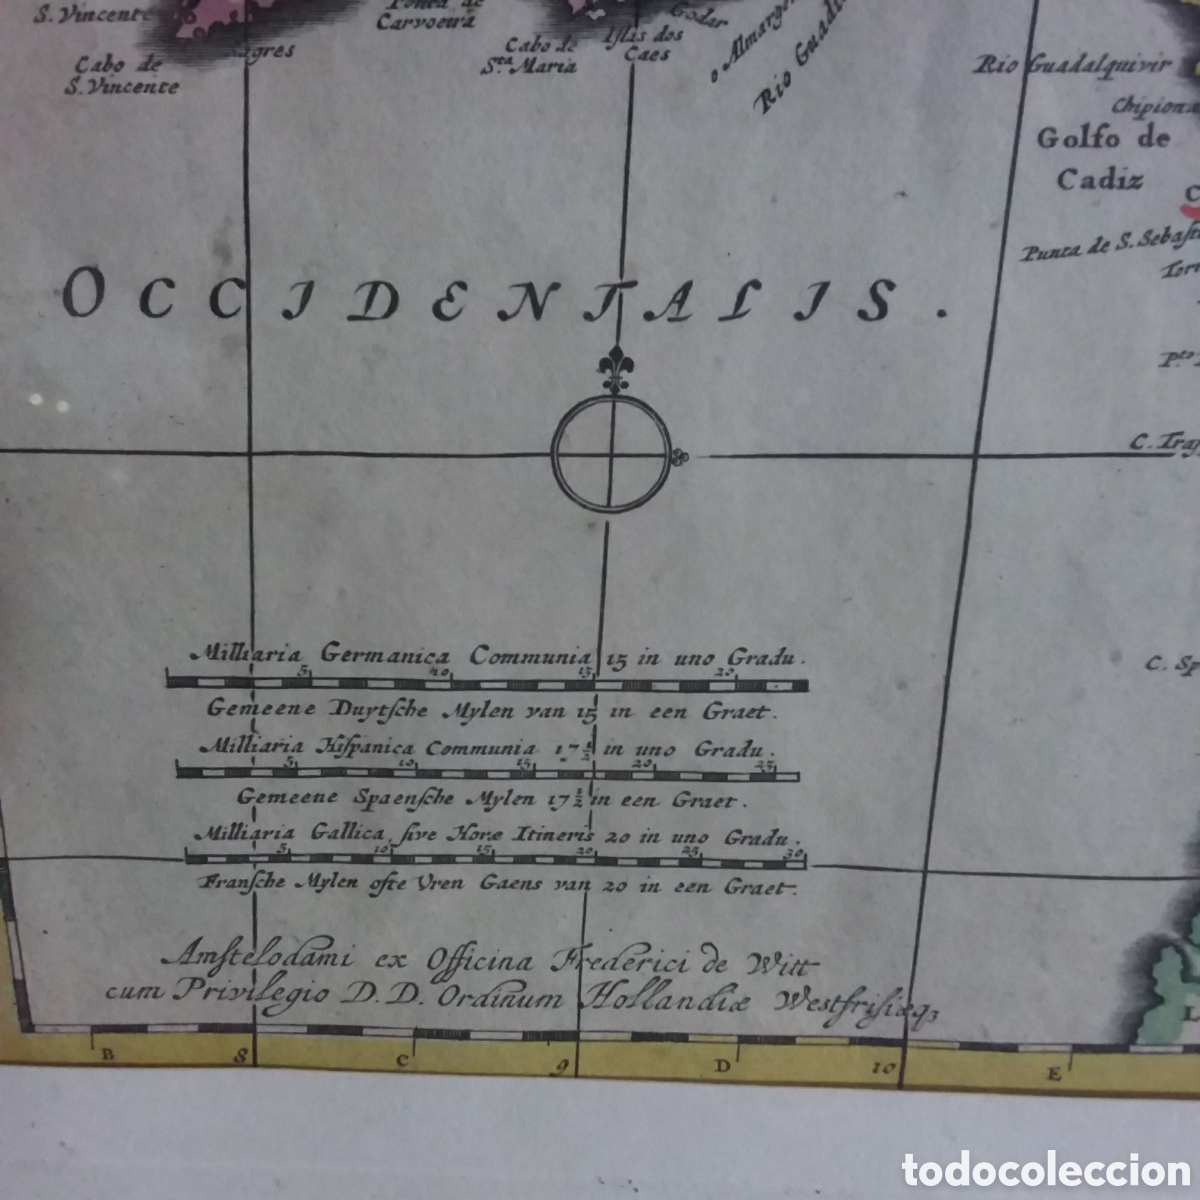 S. Vincente
Cabo de
S. Vincente
Carvoeira
Cabo de
Sta. Maria
Islis dos
Caes
Godar
Rio Guadalquivir
Golfo de
Cadiz
Punta de S. Sebast
OCCIDENTALIS.
C. Traf
C. Sp
Milliaria Germanica Communia 15 in uno Gradu.
5 10 15 20
Gemeene Duytsche Mylen van 15 in een Graet.
Milliaria Hispanica Communia 17 ½ in uno Gradu.
5 10 15 20 25
Gemeene Spaensche Mylen 17 ½ in een Graet.
Milliaria Gallica, sive Horæ Itineris 20 in uno Gradu.
5 10 15 20 25 30
Fransche Mylen ofte Vren Gaens van 20 in een Graet.
Amstelodami ex Officina Frederici de Witt
cum Privilegio D.D. Ordinum Hollandiæ Westfrisiæq3
B 8 C 9 D 10 E
todocoleccion